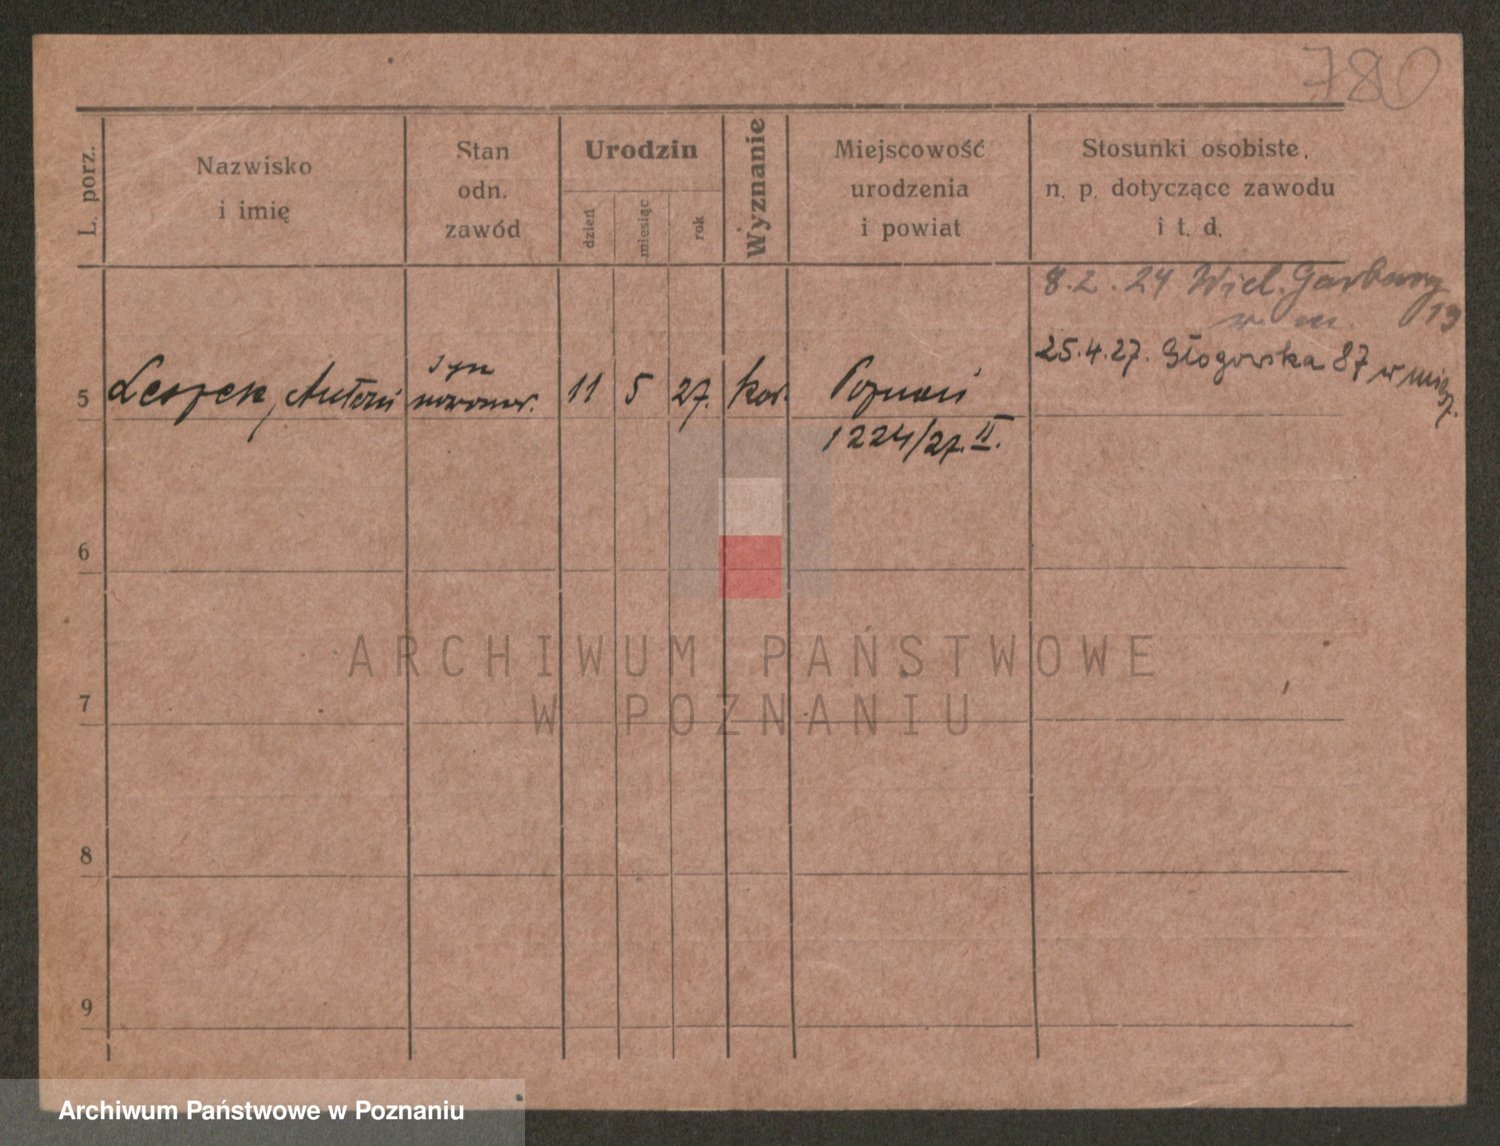 780
L. porz.
Nazwisko
i imię
Stan
odn.
zawód
Urodzin
dzień
miesiąc
rok
Wyznanie
Miejscowość
urodzenia
i powiat
Stosunki osobiste,
n. p. dotyczące zawodu
i t. d.
8.2.24 Wiel. Garbary 19
w m.
25.4.27. Głogowska 87 w miej.
5
Leszek, Antoni
syn
11
5
27.
kat.
Poznań
1224/27. II.
6
7
8
9
ARCHIWUM PAŃSTWOWE
W POZNANIU
Archiwum Państwowe w Poznaniu